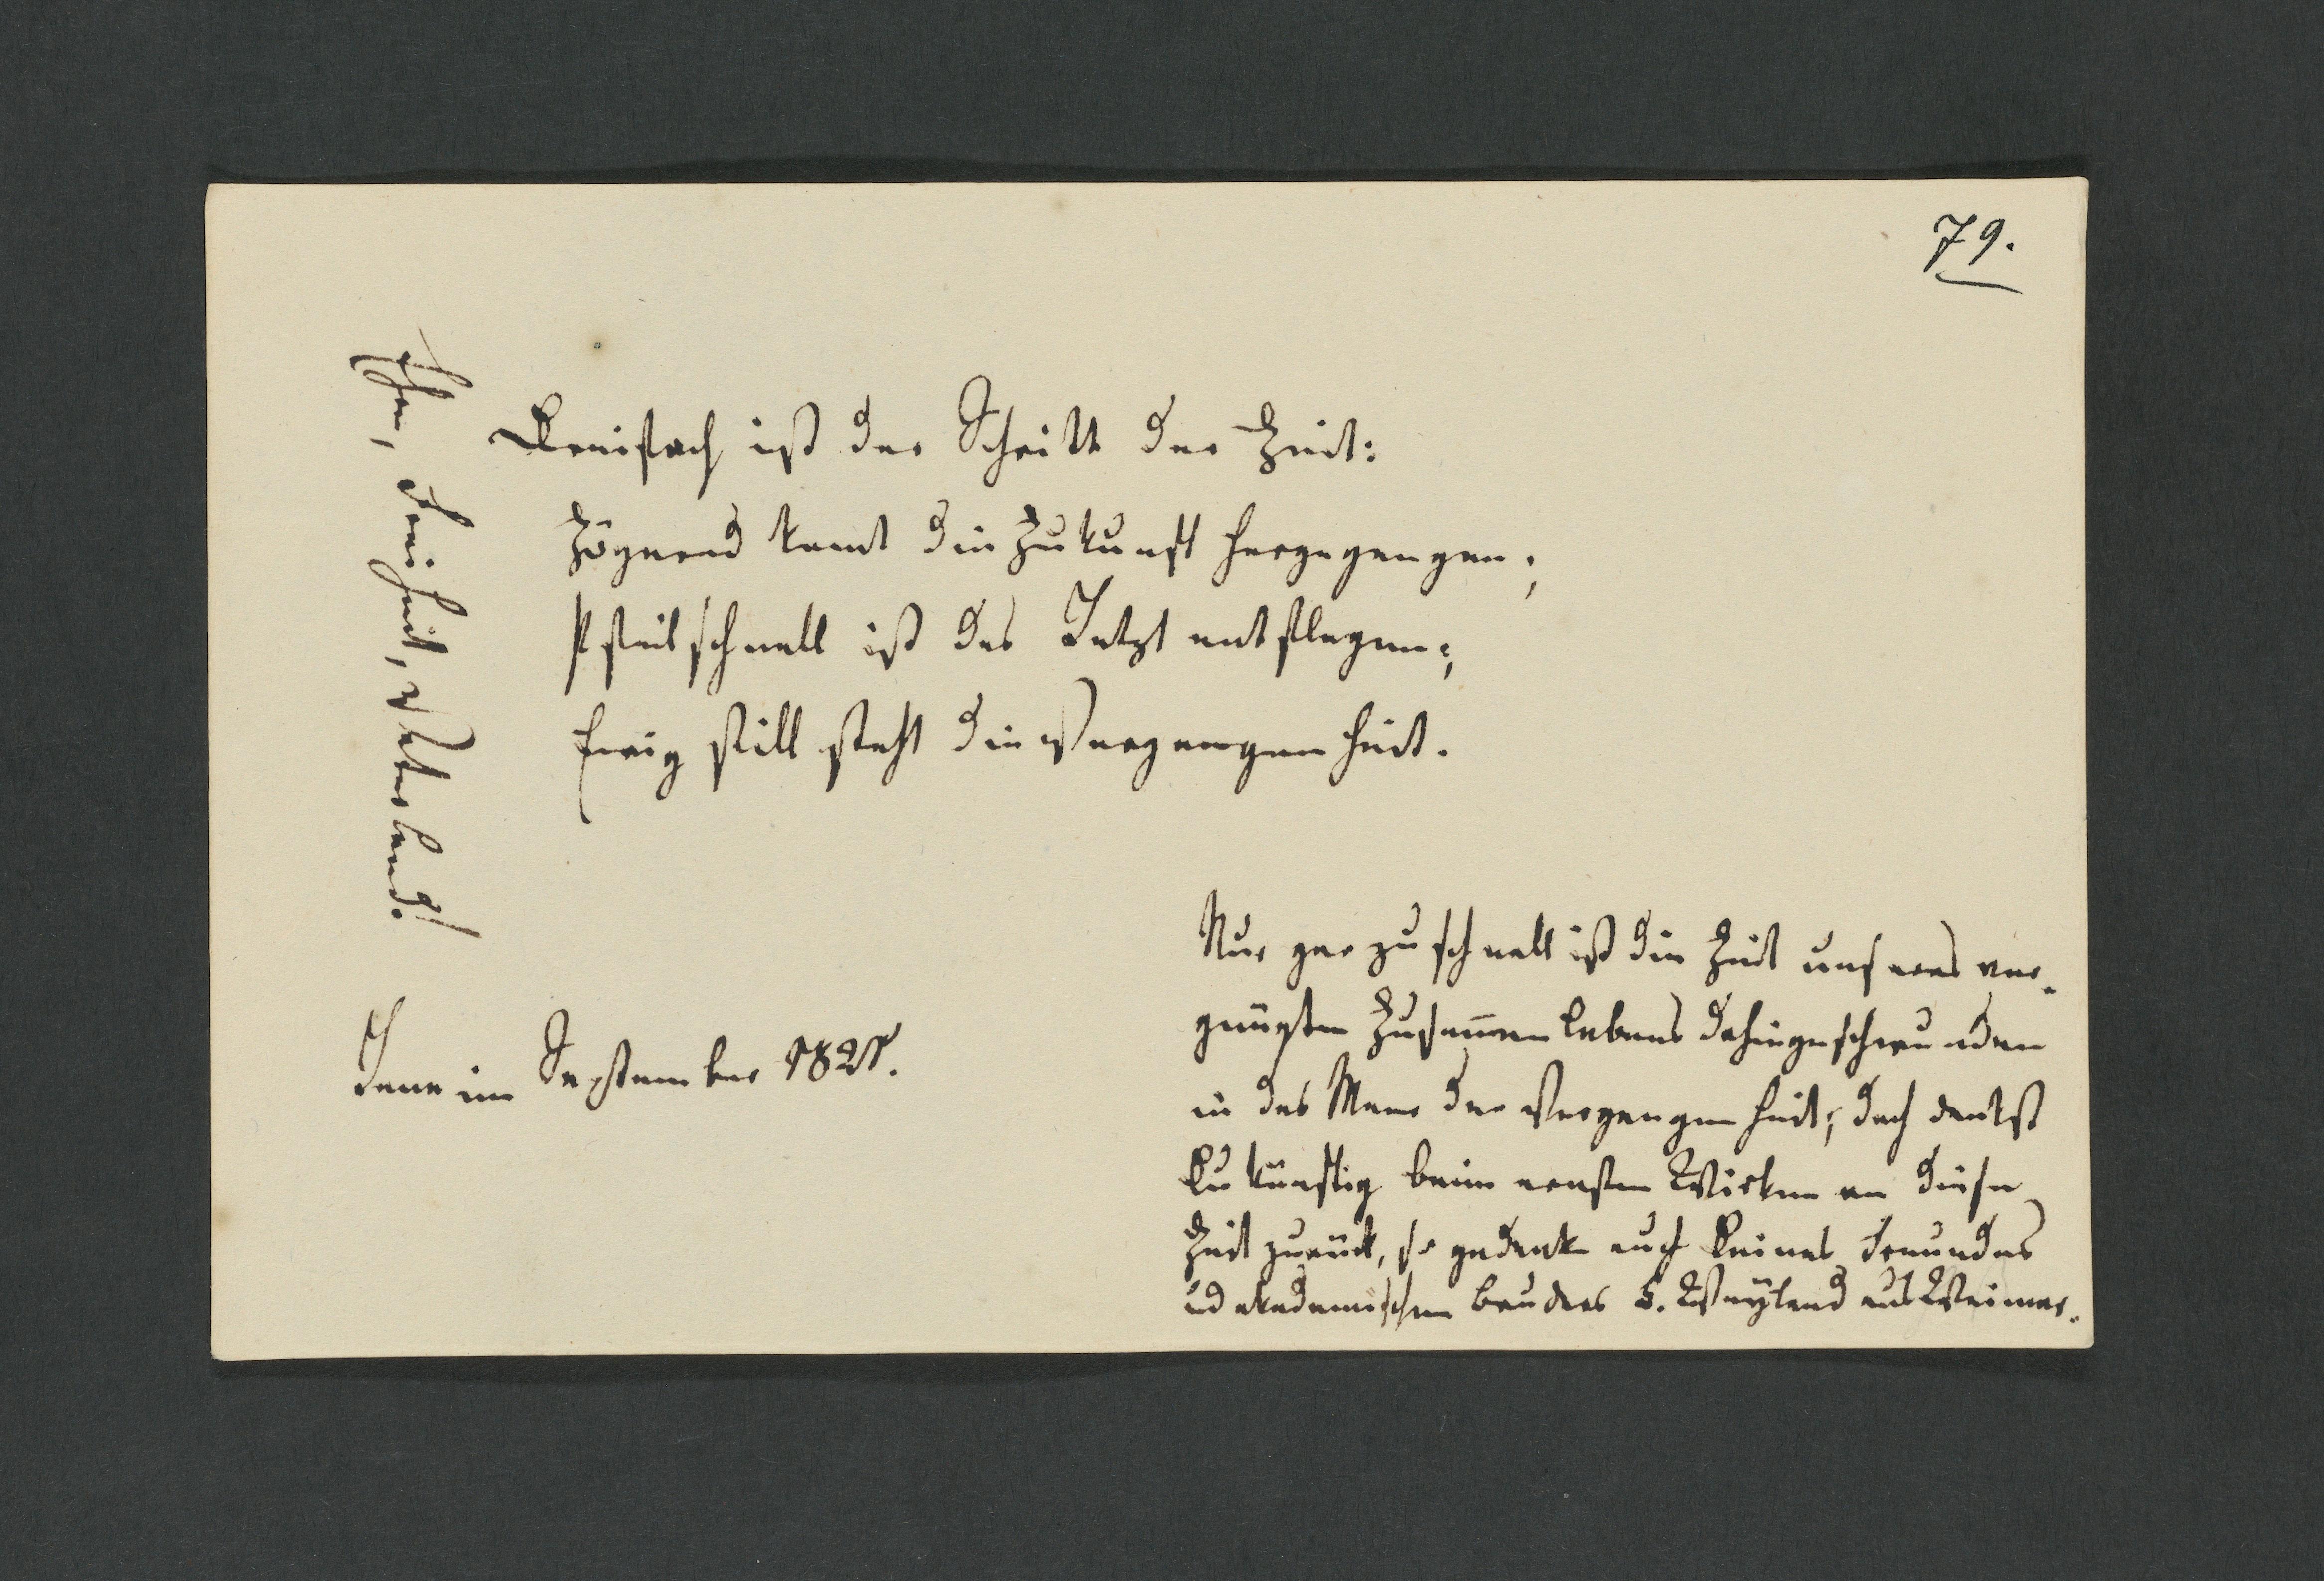 79.
Dreifach ist der Schritt der Zeit:
Zögernd komt die Zukunft hergegangen;
Pfeilschnell ist das Jetzt entflogen;
Ewig still steht die Vergangenheit.
Ehre, Freiheit, Vaterland!
Jena im September 1821.
Nur gar zu schnell ist die Zeit unseres ver-
gnügten Zusam̅enlebens dahingeschwunden
in das Meer der Vergangenheit; doch denkst
Du künftig beim ernsten Wirken an diese
Zeit zurück, so gedenke auch Deines Freundes
ud akademischen Bruders E. Weyland aus Weimar.